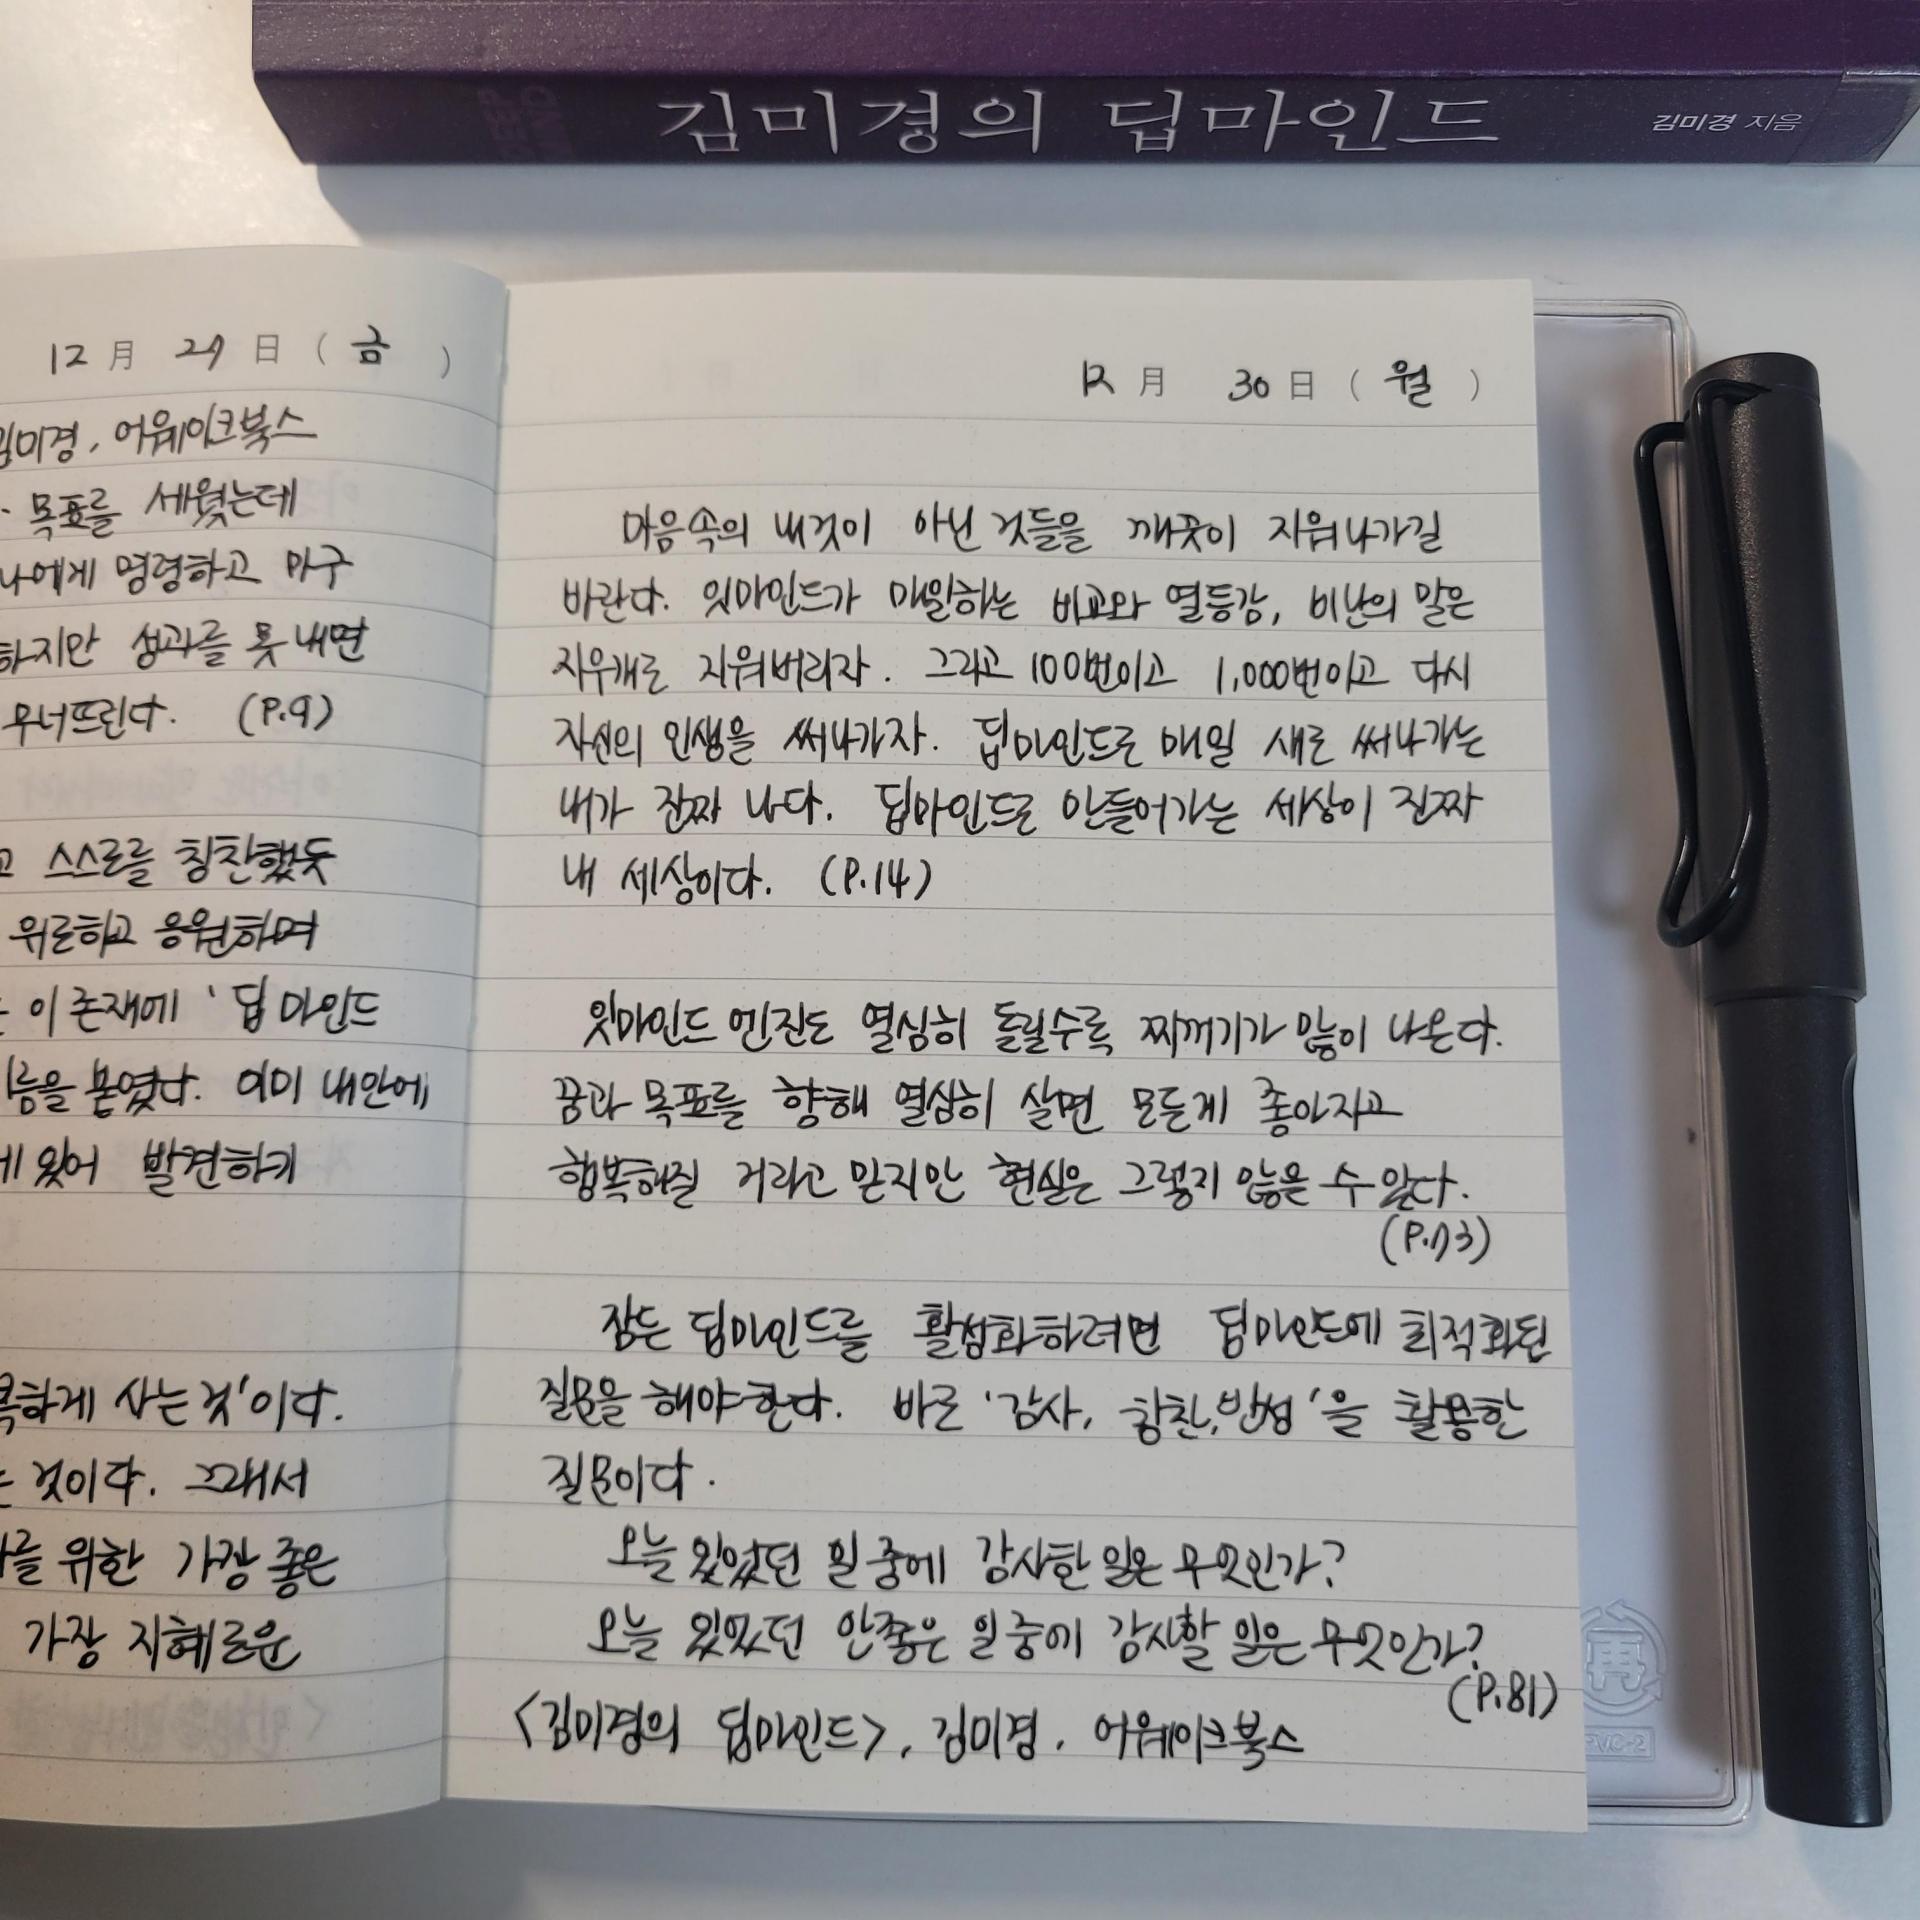 김미경의 딥마인드
김미경 지음
12 月 27 日 ( 금 )
김미경, 어웨이크북스
목표를 세웠는데
나에게 명령하고 마구
하지만 성과를 못 내면
무너뜨린다. (P.9)
고 스스로를 칭찬했듯
위로하고 응원하며
이 존재에 '딥마인드
이름을 붙였다. 이미 내안에
있어 발견하기
하게 사는 것'이다.
것이다. 그래서
를 위한 가장 좋은
가장 지혜로운
12 月 30 日 ( 월 )
마음속의 내것이 아닌 것들을 깨끗이 지워나가길
바란다. 잇마인드가 매일하는 비교와 열등감, 비난의 말은
지우개로 지워버리자. 그리고 100번이고 1,000번이고 다시
자신의 인생을 써나가자. 딥마인드로 매일 새로 써나가는
내가 진짜 나다. 딥마인드로 만들어가는 세상이 진짜
내 세상이다. (P.14)
잇마인드 엔진도 열심히 돌릴수록 찌꺼기가 많이 나온다.
꿈과 목표를 향해 열심히 살면 모든게 좋아지고
행복해질 거라고 믿지만 현실은 그렇지 않을 수 있다.
(P.73)
잠든 딥마인드를 활성화하려면 딥마인드에 최적화된
질문을 해야 한다. 바로 '감사, 칭찬, 반성'을 활용한
질문이다.
오늘 있었던 일 중에 감사한 일은 무엇인가?
오늘 있었던 안좋은 일 중에 감사할 일은 무엇인가?
(P.81)
<김미경의 딥마인드>, 김미경, 어웨이크북스
再
PVC-2